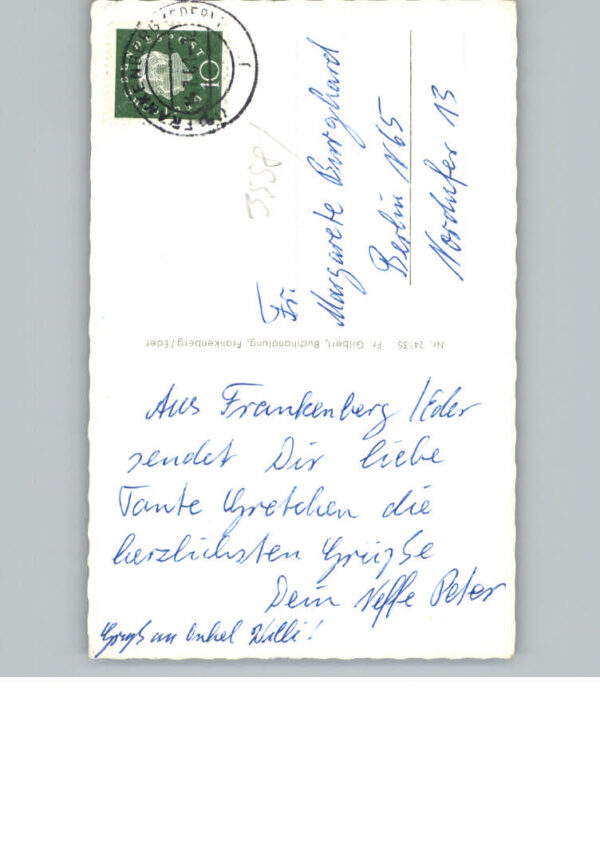 DEUTSCHE BUNDESPOST
10
FRANKENBERG (EDER)
Fr.
Margarete Burghard
Berlin N65
Nordufer 13
Fr. Gilbert, Buchhandlung, Frankenberg/Eder
Aus Frankenberg/Eder
sendet Dir liebe
Tante Gretchen die
herzlichsten Grüße
Dein Neffe Peter
Gruß an Onkel Willi!